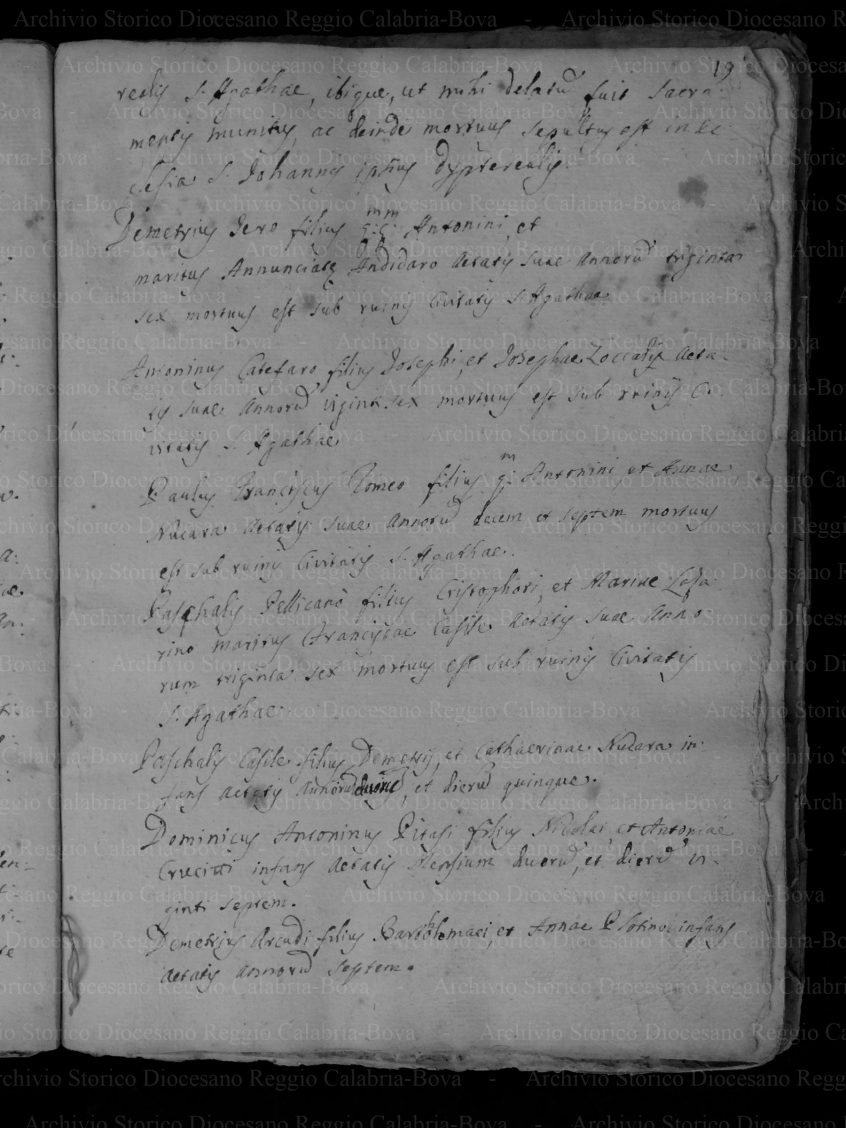 19
S. Agathae, ibique, ut mihi delatũ fuit Sacra
mentis munitus, ac deinde mortuus sepultus est in Ec
clesia S. Johannis ipsius
Demetrius Dero filius qq: mm Antonini et
maritus Annunciatę Andidaro aetatis suae Annorũ triginta
sex mortuus est sub ruinis Civitatis S. Agathae
Antoninus Catefaro filius Josephi, et Josephae Zoccaly aeta-
tis suae Annorũ viginti sex mortuus est sub ruinis Ci-
vitatis S. Agathae
Paulus Franciscus Romeo filius q: m Antonini, et Annae
Nucara Aetatis suae Annorũ decem et septem mortuus
est sub ruinis Civitatis S. Agathae.
Paschalis Pellicanò filius Cristophori, et Mariae
rino maritus Franciscae Casile Aetatis suae Anno
rum triginta sex mortuus est sub ruinis Civitatis
S. Agathae
Paschalis Casile filius Demetrij, et Cathaerinae Nucara in-
fans aetatis Annorũ duorũ, et dierũ quinque.
Dominicus Antoninus Pitasi filius Nicolai et Antoniae
Crucitti infans Aetatis Mensium duorũ, et dierũ vi-
ginti septem.
Demetrius Arcudi filius Bartholomaei, et Annae Plotino infans
aetatis annorũ septem.
Archivio Storico Diocesano Reggio Calabria-Bova